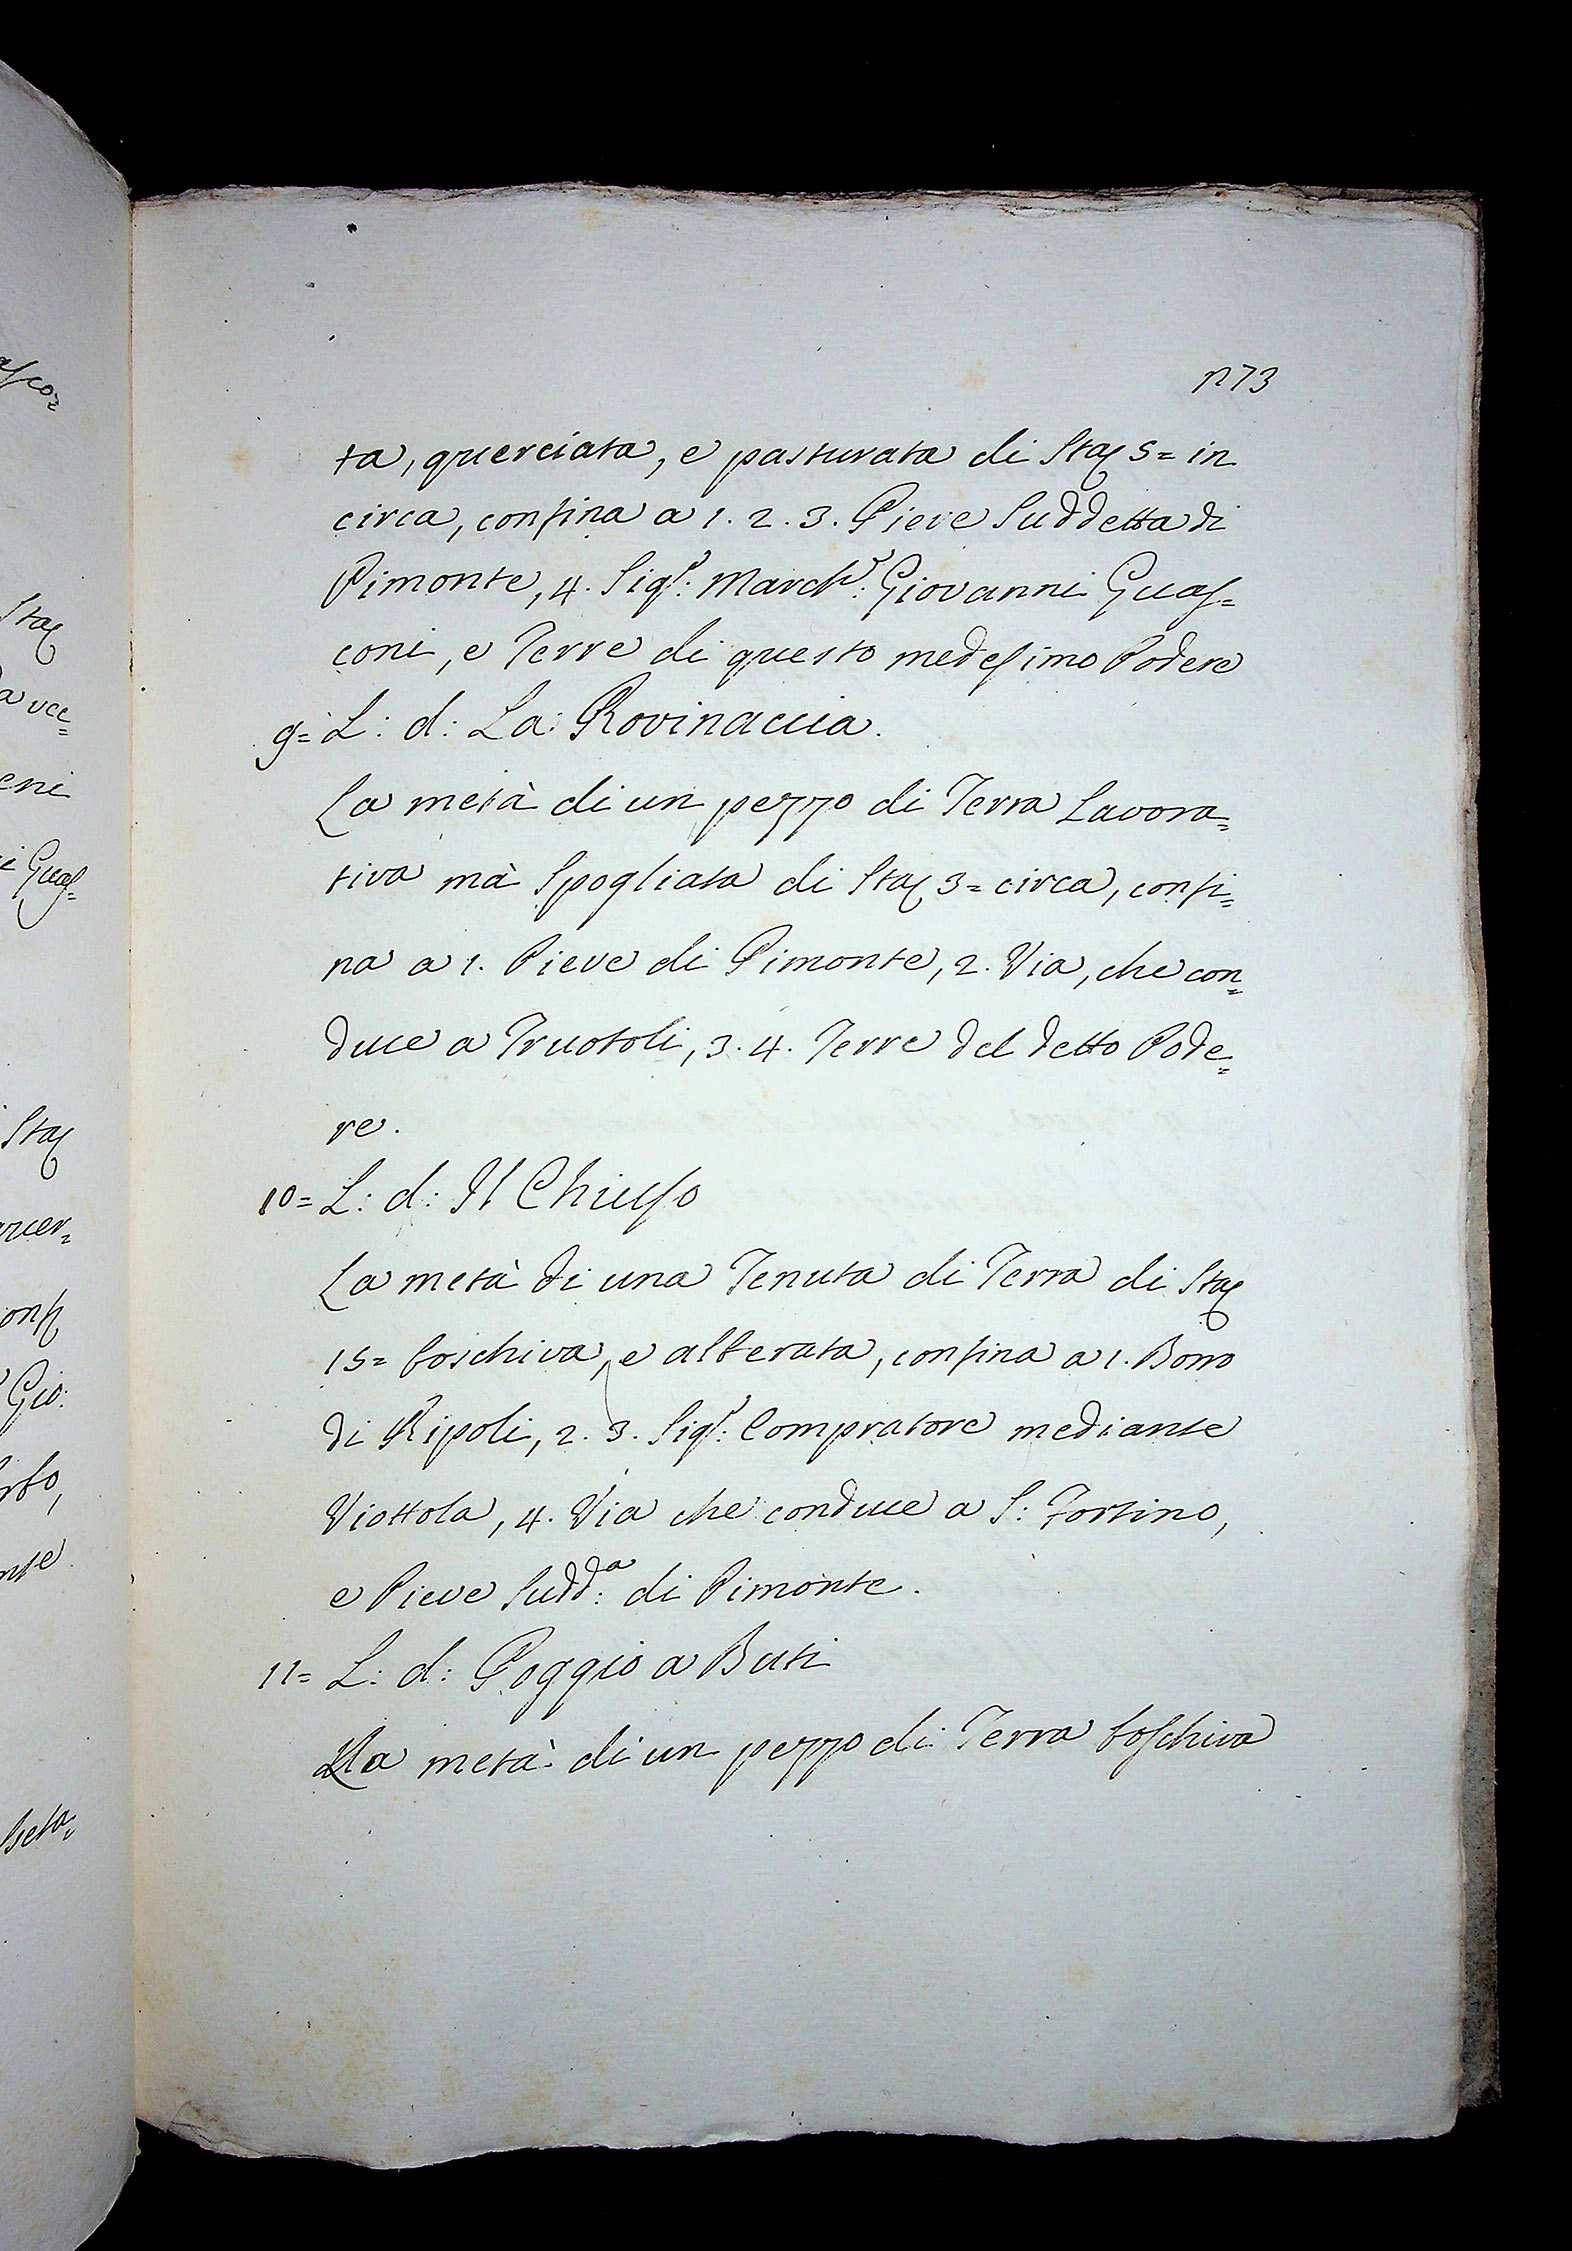 n 73
ta, querciata, e pasturata di Sta 5= in
circa, confina a 1. 2. 3. Pieve Suddetta di
Pimonte, 4. Sigr: Marchr: Giovanni Guas=
coni, e Terre di questo medesimo Podere
9= L: d: La Rovinaccia.
La metà di un pezzo di Terra Lavora=
tiva mà Spogliata di Sta 3= circa, confi=
na a 1. Pieve di Pimonte, 2. Via, che con=
duce a Truotoli, 3. 4. Terre del detto Pode=
re.
10= L: d: Il Chiuso
La metà di una Tenuta di Terra di Sta
15= boschiva, e alberata, confina a 1. Borro
di Ripoli, 2. 3. Sigr: Compratore mediante
Viottola, 4. Via che conduce a S: Fortino,
e Pieve Sudda: di Pimonte.
11= L: d: Poggio a Buti
La metà di un pezzo di Terra boschiva